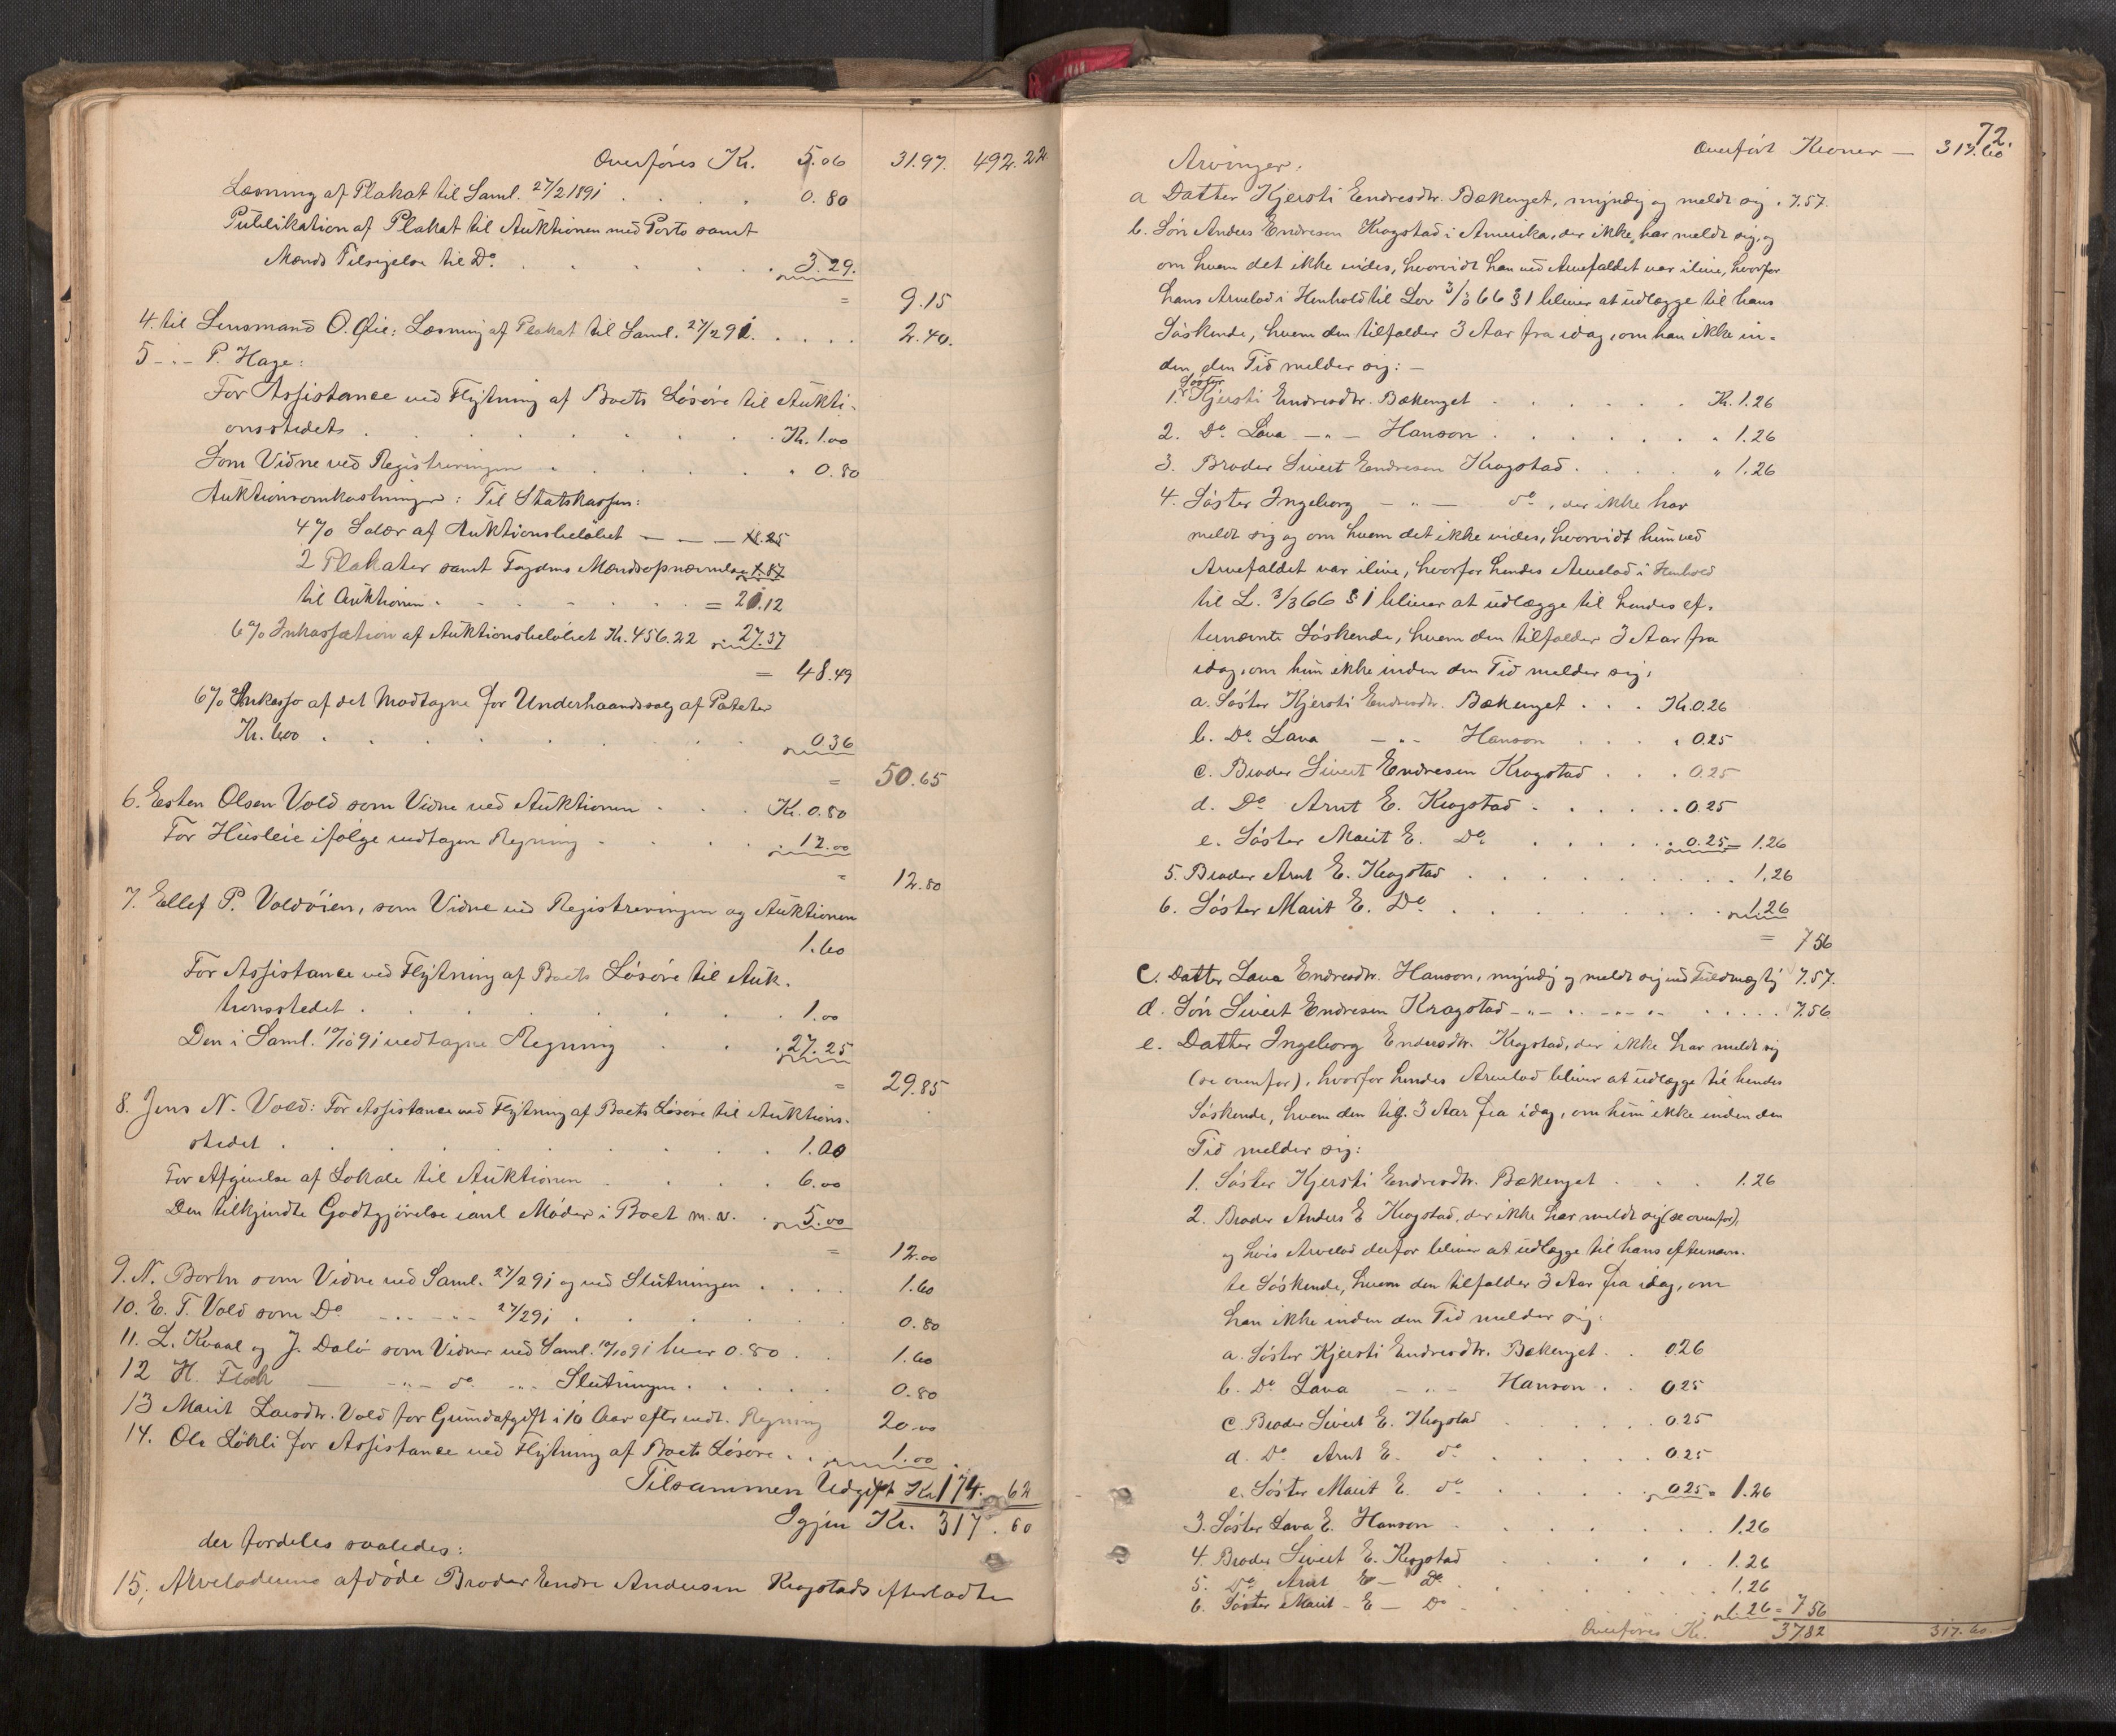 Overføres Kr. 5.06 31.97. 492.22
Læsning af Plakat til Saml. 27/2 1891 . . . . 0.80
Publikation af Plakat til Auktionen med Porto samt
Mænds Tilsigelse til Do. . . . . . 3.29.
= 9.15
4. til Lensmand O. Øie: Læsning af Plakat til Saml. 27/2 91. . . . . 2.40.
5 - " - P. Hage:
For Assistance ved Flytning af Boets Løsøre til Aukti-
onsstedet . . . . . . . Kr. 1.00
Som Vidne ved Registreringen . . . . . 0.80
Auktionsomkostninger: Til Statskassen:
4% Salær af Auktionsbeløbet — — — 18.25
2 Plakater samt Fogdens Mændsopnævnelse 1.87
til Auktionen . . . . . . = 20.12
6% Inkassation af Auktionsbeløbet Kr. 456.22 27.37
= 48.49
6% Inkasso af det Modtagne for Underhaandssalg af Poteter
Kr. 6.00 . . . . . . 0.36
= 50.65
6. Esten Olsen Vold som Vidne ved Auktionen . . . Kr. 0.80
For Husleie ifølge vedtagen Regning . . . . 12.00
= 12.80
7. Ellef P. Voldøien, som Vidne ved Registreringen og Auktionen
1.60
For Assistance ved Flytning af Boets Løsøre til Auk-
tionsstedet . . . . . . . 1.00
Den i Saml. 10/10 91 vedtagne Regning . . . 27.25
= 29.85
8. Jens N. Vold: For Assistance ved Flytning af Boets Løsøre til Auktions-
stedet . . . . . . . . 1.00
For Afgivelse af Lokale til Auktionen . . . . 6.00
Den tilkjendte Godtgjørelse i anl. Møder i Boet m. v. . 5.00
= 12.00
9. N. Bortn som Vidne ved Saml. 27/2 91 og ved Slutningen . . . . 1.60
10. E. T. Vold som Do - " - " - 27/2 91 . . . . . . 0.80
11. L. Kvaal og J. Dalø som Vidner ved Saml. 10/10 91 hver 0.80 . . 1.60
12 H. Floch — - " - do - " - Slutningen . . . . . 0.80
13 Marit Larsdtr. Vold for Grundafgift i 10 Aar efter vedt. Regning 20.00
14. Ole Løkli for Assistance ved Flytning af Boets Løsøre . . 1.00
Tilsammen Udgift Kr 174. 62
Igjen Kr. 317. 60
der fordeles saaledes:
15, Arveladerens afdøde Broder Endre Andersen Krogstads efterladte
72.
Overført Kroner — 317.60
Arvinger:
a Datter Kjersti Endresdtr. Bækenget, myndig og meldt sig . 7.57.
b. Søn Anders Endresen Krogstad i Amerika, der ikke har meldt sig, og
om hvem det ikke vides, hvorvidt han ved Arvefaldet var ilive, hvorfor
hans Arvelod i Henhold til Lov 3/3 66 § 1 bliver at udlægge til hans
Søskende, hvem den tilfalder 3 Aar fra idag, om han ikke in-
den den Tid melder sig: —
1. Søster Kjersti Endresdtr. Bækenget . . . . . . Kr. 1.26
2. Do Lava — " — Hanson . . . . . . . " 1.26
3. Broder Sivert Endresen Krogstad . . . . " 1.26
4. Søster Ingeborg — " — do, der ikke har
meldt sig og om hvem det ikke vides, hvorvidt hun ved
Arvefaldet var ilive, hvorfor hendes Arvelod i Henhold
til L. 3/3 66 § 1 bliver at udlægge til hendes ef-
ternævnte Søskende, hvem den tilfalder 3 Aar fra
idag, om hun ikke inden den Tid melder sig:
a. Søster Kjersti Endresdtr. Bækenget . . . Kr. 0.26
b. Do Lava — " — Hanson . . . " 0.25
c. Broder Sivert Endresen Krogstad . . . 0.25
d. Do Arnt E. Krogstad . . . . . . 0.25
e. Søster Marit E. Do . . . . . 0.25 = 1.26
5. Broder Arnt E. Krogstad . . . . . . . . . . 1.26
6. Søster Marit E. Do . . . . . . . . . 1.26
= 7 56
c. Datter Lava Endresdtr. Hanson, myndig og meldt sig ved Fuldmægtig 7.57.
d. Søn Sivert Endresen Krogstad - " - " - " - " - . . . . . 7.56
e. Datter Ingeborg Endresdtr. Krogstad, der ikke har meldt sig
(se ovenfor), hvorfor hendes Arvelod bliver at udlægge til hendes
Søskende, hvem den tilf. 3 Aar fra idag, om hun ikke inden den
Tid melder sig:
1. Søster Kjersti Endresdtr. Bækenget . . . 1.26
2. Broder Anders E Krogstad, der ikke har meldt sig (se ovenfor),
og hvis Arvelod derfor bliver at udlægge til hans efternævn-
te Søskende, hvem den tilfalder 3 Aar fra idag, om
han ikke inden den Tid melder sig:
a. Søster Kjersti Endresdtr. Bækenget . . 0.26
b. Do Lava — " — Hanson . . 0.25
c. Broder Sivert E. Krogstad . . . . . 0.25
d. Do Arnt E. do . . . . . . 0.25
e. Søster Marit E. do . . . . . 0.25 = 1.26
3. Søster Lava E. Hanson . . . . . . . 1.26
4. Broder Sivert E. Krogstad . . . . . . 1.26
5. Do Arnt E — Do . . . . . . . 1.26
6. Søster Marit - E — Do . . . . . . 1.26 = 7 56
Overføres Kr. 37.82 317.60